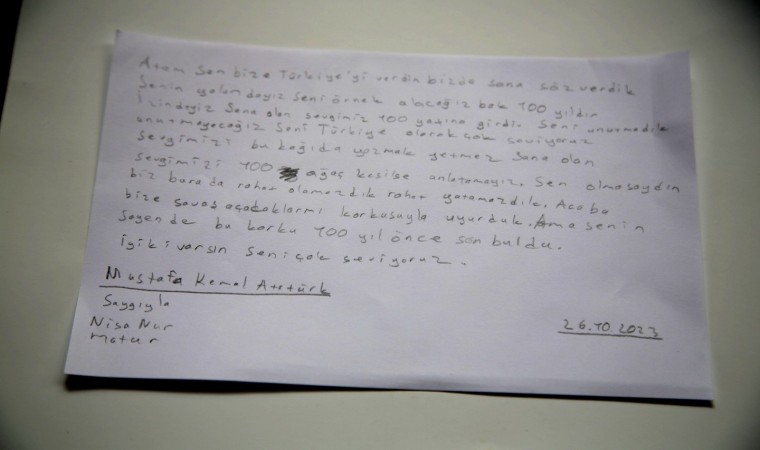 Atam Sen bize Türkiye'yi verdin bizde sana söz verdik
Senin yolundayız Seni örnek alacağız bak 100 yıldır
İzindeyiz Sana olan sevgimiz 100 yaşına girdi. Seni unutmadık
unutmayacağız Seni Türkiye olarak çok seviyoruz
Sevgimizi bu kağıda yazmak yetmez Sana olan
Sevgimizi 100 ağaç kesilse anlatamayız. Sen olmasaydın
biz burada rahat olamazdık rahat yatamazdık. Acaba
bize savaş açacaklarmı korkusuyla uyurduk. Ama senin
Sayende bu korku 100 yıl önce son buldu.
İyiki varsın Seni çok seviyoruz.
Mustafa Kemal Atatürk
Saygıyla
Nisa Nur
26.10.2023